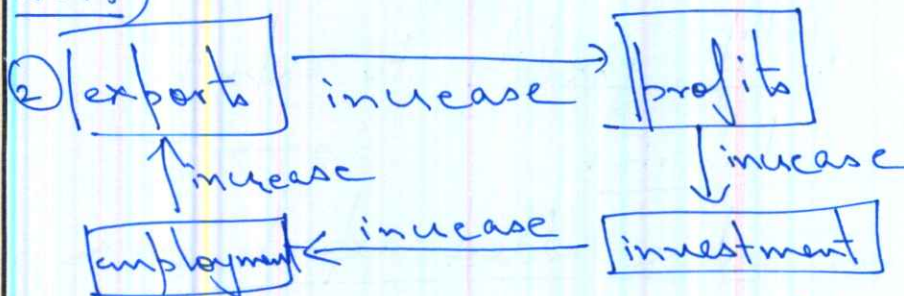 ② exports increase profits
increase increase
employment increase investment